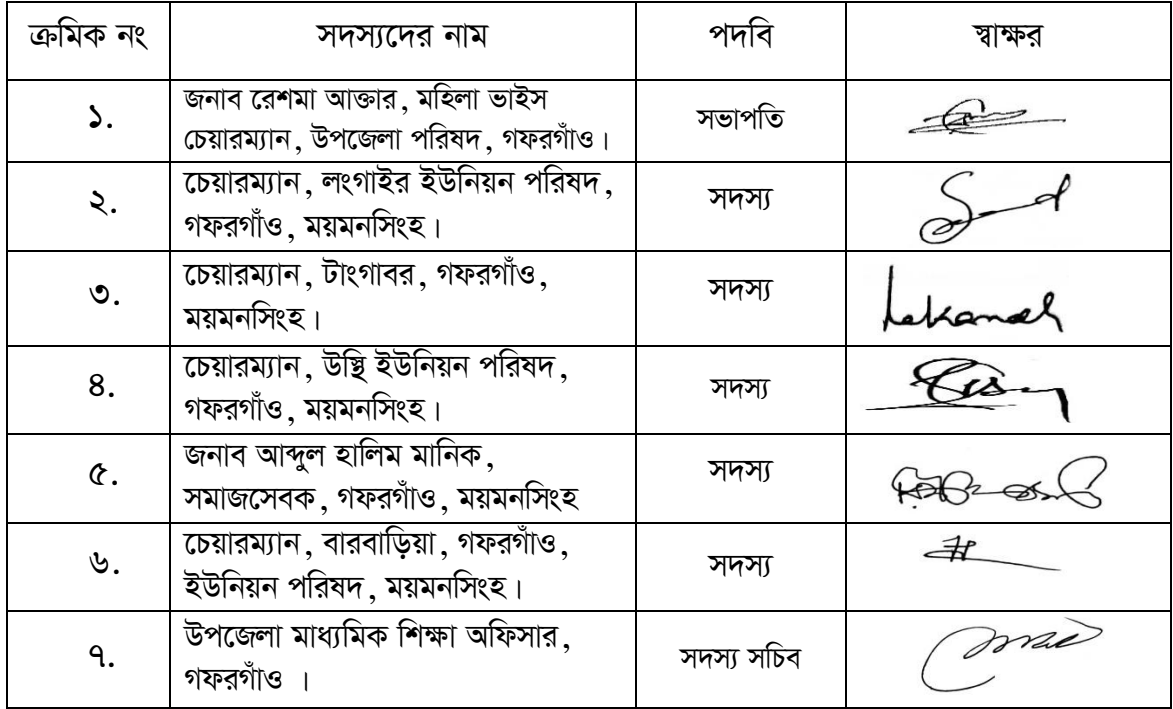 ক্রমিক নং সদস্যদের নাম পদবি স্বাক্ষর
১. জনাব রেশমা আক্তার, মহিলা ভাইস চেয়ারম্যান, উপজেলা পরিষদ, গফরগাঁও। সভাপতি
২. চেয়ারম্যান, লংগাইর ইউনিয়ন পরিষদ, গফরগাঁও, ময়মনসিংহ। সদস্য
৩. চেয়ারম্যান, টাংগাবর, গফরগাঁও, ময়মনসিংহ। সদস্য
৪. চেয়ারম্যান, উস্থি ইউনিয়ন পরিষদ, গফরগাঁও, ময়মনসিংহ। সদস্য
৫. জনাব আব্দুল হালিম মানিক, সমাজসেবক, গফরগাঁও, ময়মনসিংহ সদস্য
৬. চেয়ারম্যান, বারবাড়িয়া, গফরগাঁও, ইউনিয়ন পরিষদ, ময়মনসিংহ। সদস্য
৭. উপজেলা মাধ্যমিক শিক্ষা অফিসার, গফরগাঁও । সদস্য সচিব